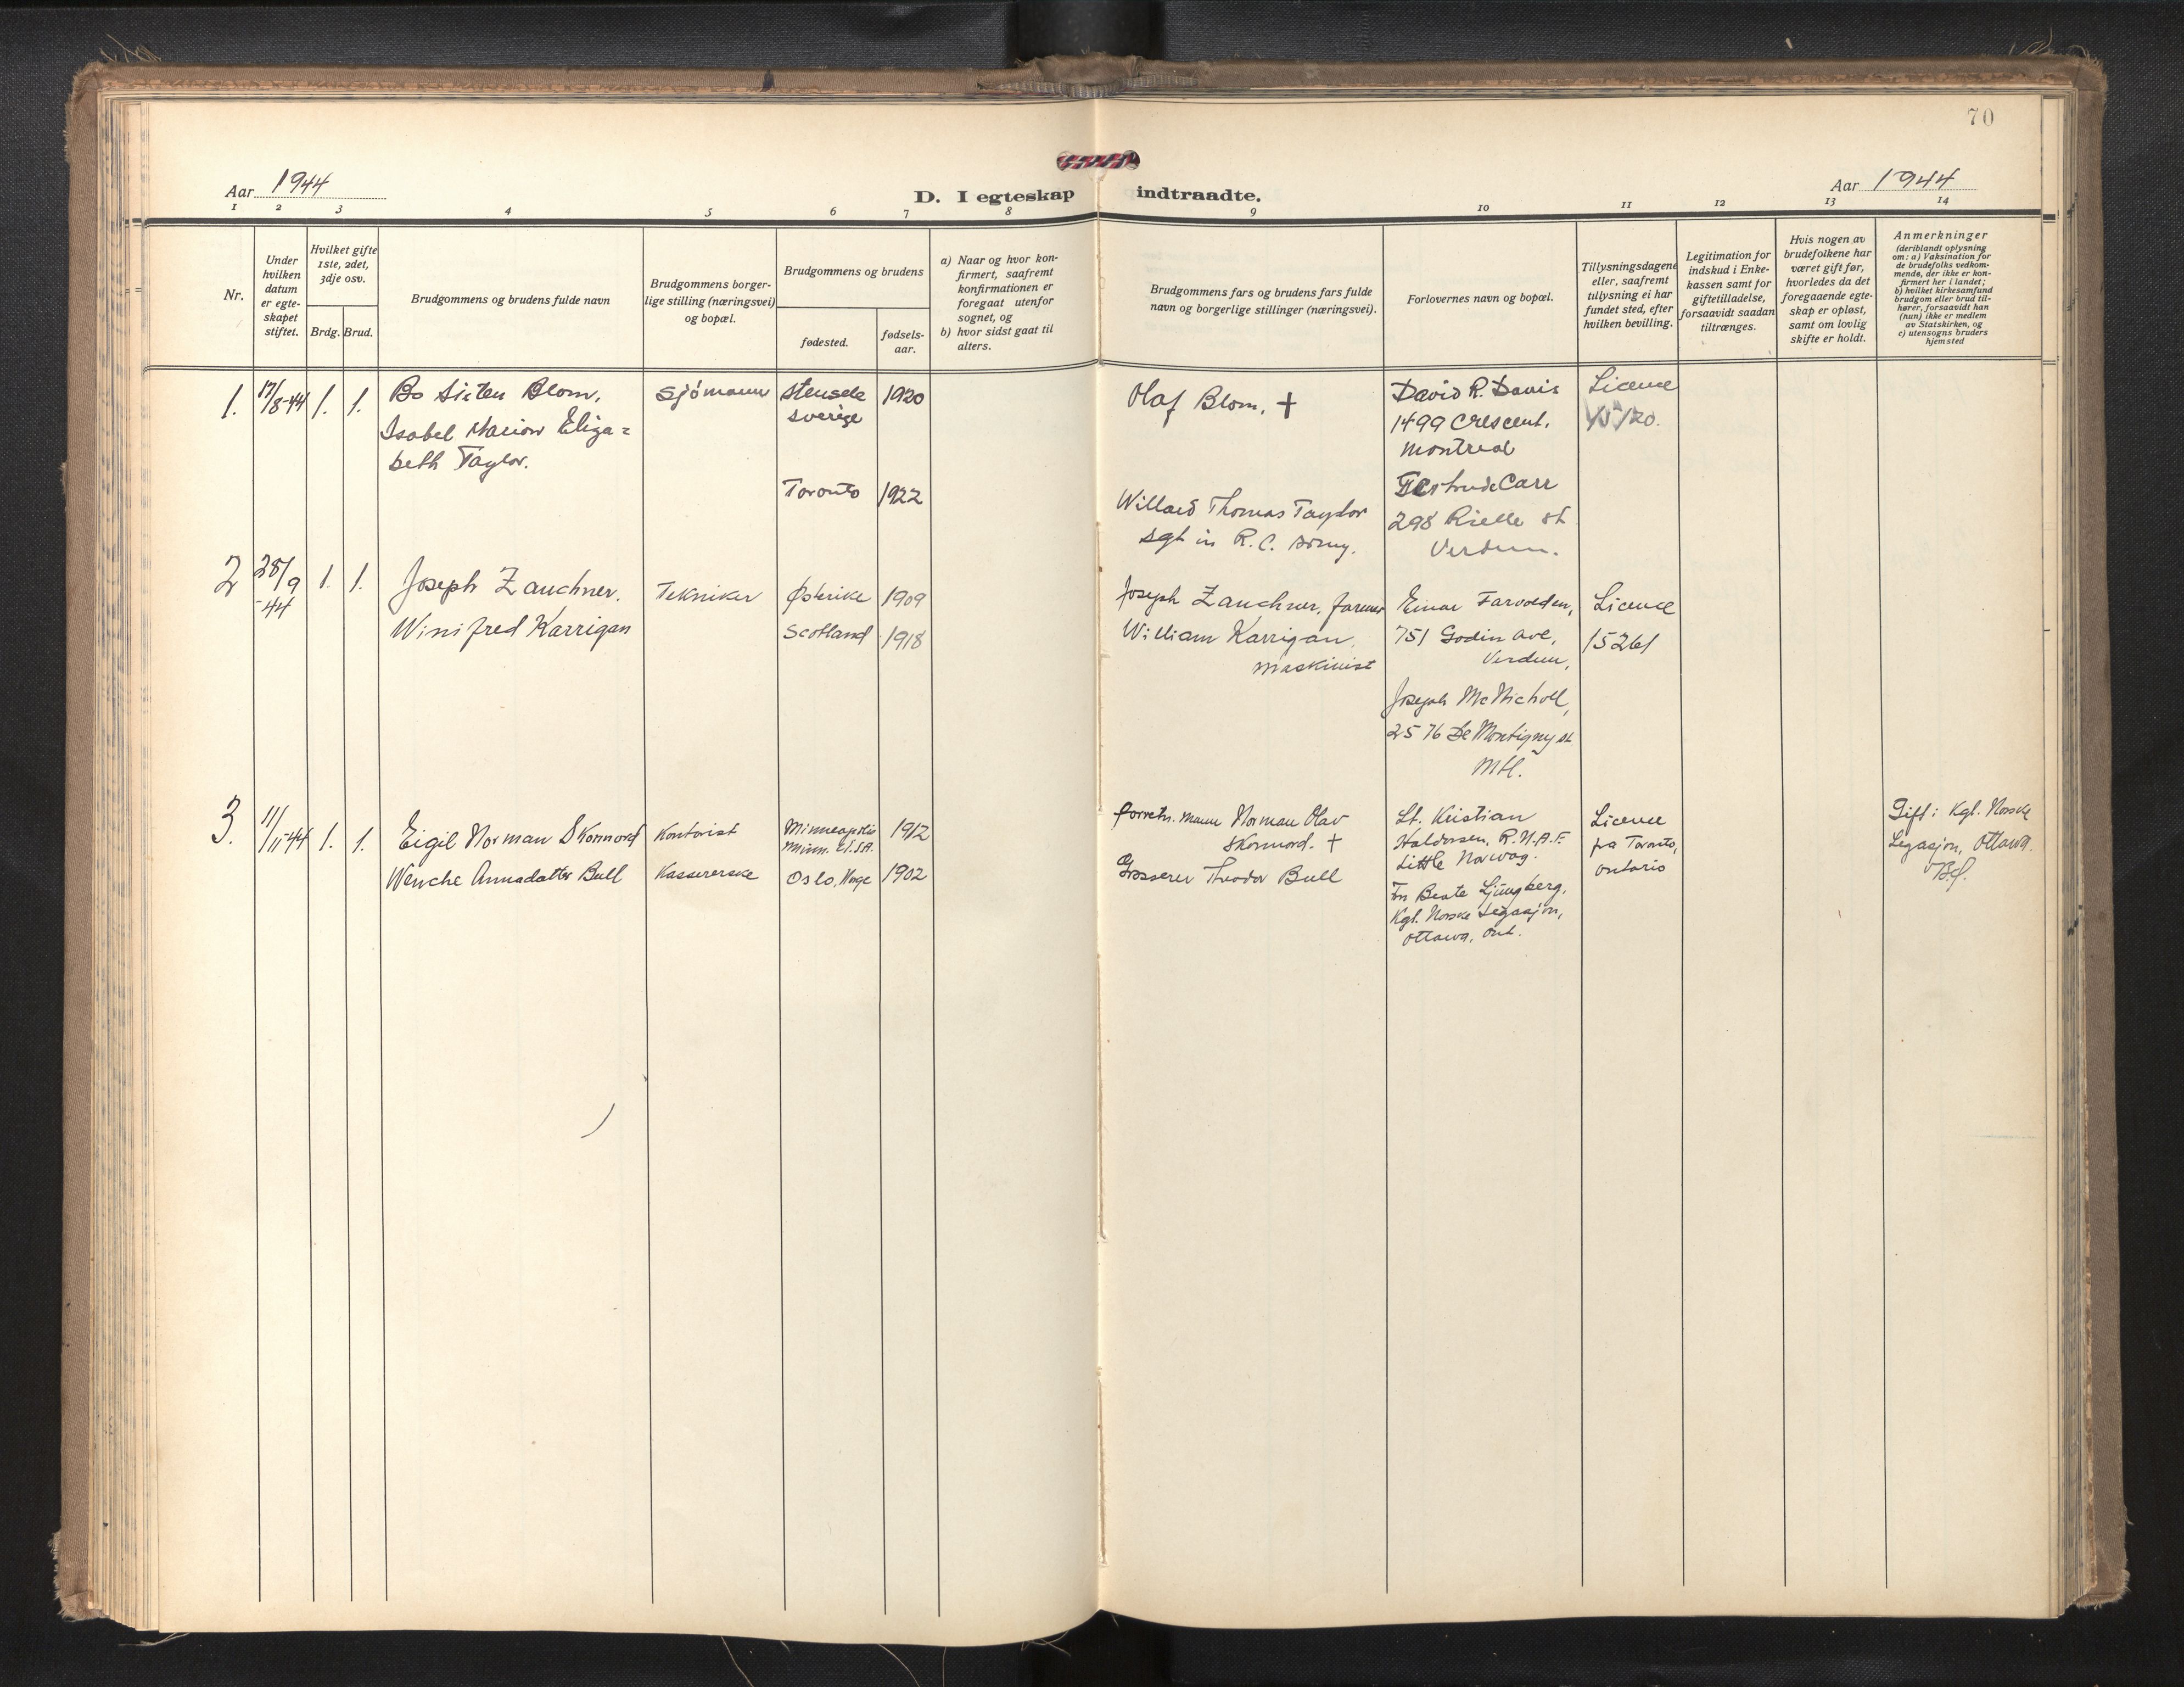 70
Aar 1944
D. I egteskap indtraadte.
Aar 1944
1 2 3 4 5 6 7 8 9 10 11 12 13 14
Nr.
Under
hvilken
datum
er egte-
skapet
stiftet.
Hvilket gifte
1ste, 2det,
3dje osv.
Brdg. Brud.
Brudgommens og brudens fulde navn
Brudgommens borger-
lige stilling (næringsvei)
og bopæl.
Brudgommens og brudens
fødested.
fødsels-
aar.
a) Naar og hvor kon-
firmert, saafremt
konfirmationen er
foregaat utenfor
sognet, og
b) hvor sidst gaat til
alters.
Brudgommens fars og brudens fars fulde
navn og borgerlige stillinger (næringsvei).
Forlovernes navn og bopæl.
Tillysningsdagene
eller, saafremt
tillysning ei har
fundet sted, efter
hvilken bevilling.
Legitimation for
indskud i Enke-
kassen samt for
giftetilladelse,
forsaavidt saadan
tiltrænges.
Hvis nogen av
brudefolkene har
været gift før,
hvorledes da det
foregaaende egte-
skap er opløst,
samt om lovlig
skifte er holdt.
Anmerkninger
(deriblandt oplysning
om: a) Vaksination for
de brudefolks vedkom-
mende, der ikke er kon-
firmert her i landet;
b) hvilket kirkesamfund
brudgom eller brud til-
hører, forsaavidt han
(hun) ikke er medlem
av Statskirken, og
c) utensogns bruders
hjemsted
1. 17/8-44 1. 1.
Bo Sixten Blom,
Isabel Marion Eliza=
beth Taylor.
Sjömann
Stensele
Sverige
1920
Toronto 1922
Olaf Blom. +
Willard Thomas Taylor
Sgt in R. C. Army.
David R. Davis
1499 Crescent.
Montreal
Gertrude Carr
298 Rielle St
Verdun.
Licence
2 28/9
-44
1. 1.
Joseph Zauchner.
Winifred Karrigan
Tekniker
Østerike 1909
Scotland 1918
Joseph Zauchner, farmer
William Karrigan,
Maskinist
Einar Farvolden,
751 Godin Ave,
Verdun,
Joseph McNicholl,
2576 De Montigny St
Mtl.
Licence
15261
3. 11/11-44 1. 1.
Eigil Norman Skonnord
Wenche Annadatter Bull
Kontorist
Kassererske
Minneapolis
Minn. U.S.A.
1912
Oslo, Norge 1902
Forretn. mann Norman Olav
Skonnord. +
Grosserer Theodor Bull
Lt. Kristian
Haldorsen, R.N.A.F.
Little Norway.
Frk Beate Ljungberg,
Kgl. Norske Legasjon,
Ottawa, Ont.
Licence
fra Toronto,
Ontario
Gift i Kgl. Norske
Legasjon, Ottawa.